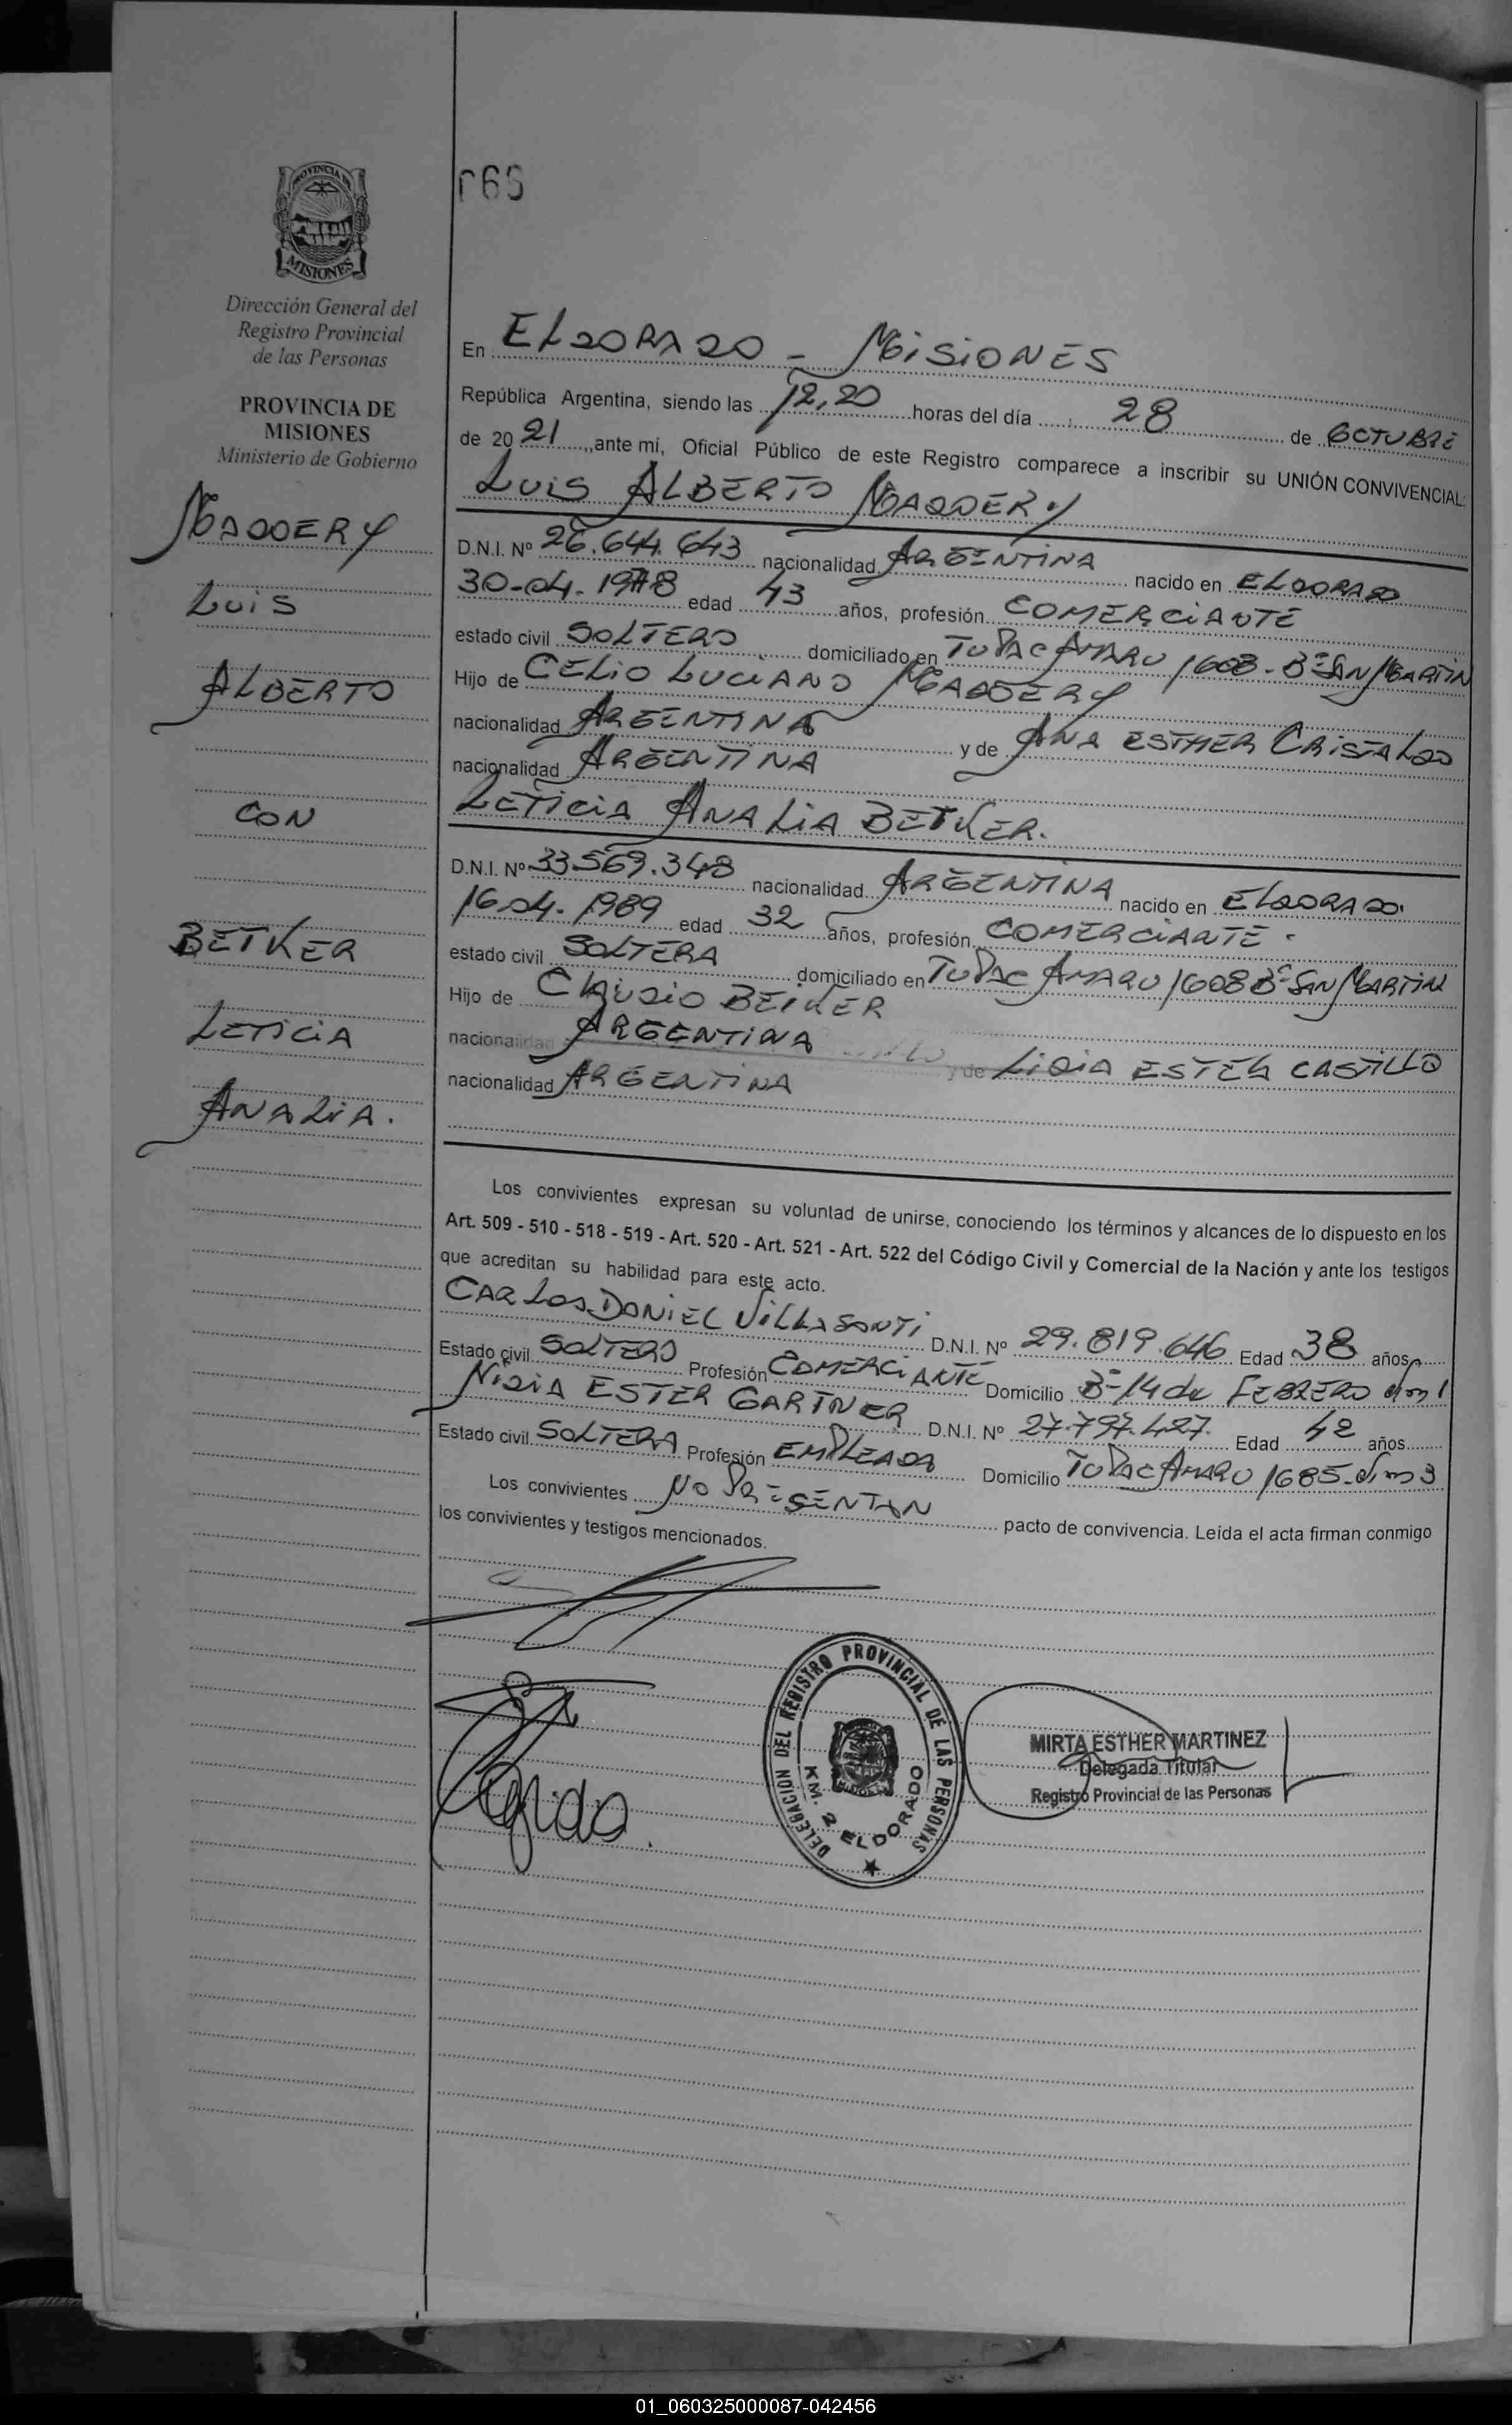 PROVINCIA DE
MISIONES
Dirección General del
Registro Provincial
de las Personas
PROVINCIA DE
MISIONES
Ministerio de Gobierno
MADDERY
LUIS
ALBERTO
CON
BETKER
LETICIA
ANALIA.
En ELDORADO - MISIONES
República Argentina, siendo las 12,20 horas del día 28 de OCTUBRE
de 2021, ante mí, Oficial Público de este Registro comparece a inscribir su UNIÓN CONVIVENCIAL:
LUIS ALBERTO MADDERY
D.N.I. Nº 26.644.643 nacionalidad ARGENTINA nacido en ELDORADO
30-04-1978 edad 43 años, profesión COMERCIANTE
estado civil SOLTERO domiciliado en TUPAC AMARU 1608-Bº SAN MARTIN
Hijo de CELIO LUCIANO MADDERY
nacionalidad ARGENTINA y de ANA ESTHER CRISTALDO
nacionalidad ARGENTINA
LETICIA ANALIA BETKER.
D.N.I. Nº 33.569.348 nacionalidad ARGENTINA nacido en ELDORADO.
16-04-1989 edad 32 años, profesión COMERCIANTE.
estado civil SOLTERA domiciliado en TUPAC AMARU 1608 Bº SAN MARTIN
Hijo de BETKER
nacionalidad ARGENTINA y de LIDIA ESTER CASTILLO
nacionalidad ARGENTINA
Los convivientes expresan su voluntad de unirse, conociendo los términos y alcances de lo dispuesto en los
Art. 509 - 510 - 518 - 519 - Art. 520 - Art. 521 - Art. 522 del Código Civil y Comercial de la Nación y ante los testigos
que acreditan su habilidad para este acto.
CARLOS DANIEL D.N.I. Nº 29.819.646 Edad 38 años
Estado civil SOLTERO Profesión COMERCIANTE Domicilio Bº 14 de FEBRERO
NIDIA ESTER GARTNER D.N.I. Nº 27.797.427. Edad 42 años
Estado civil SOLTERA Profesión EMPLEADA Domicilio TUPAC AMARU 1685
Los convivientes NO PRESENTAN pacto de convivencia. Leída el acta firman conmigo
los convivientes y testigos mencionados.
DELEGACION DEL REGISTRO PROVINCIAL DE LAS PERSONAS
KM. 2 ELDORADO
MIRTA ESTHER MARTINEZ
Delegada Titular
Registro Provincial de las Personas
01_060325000087-042456